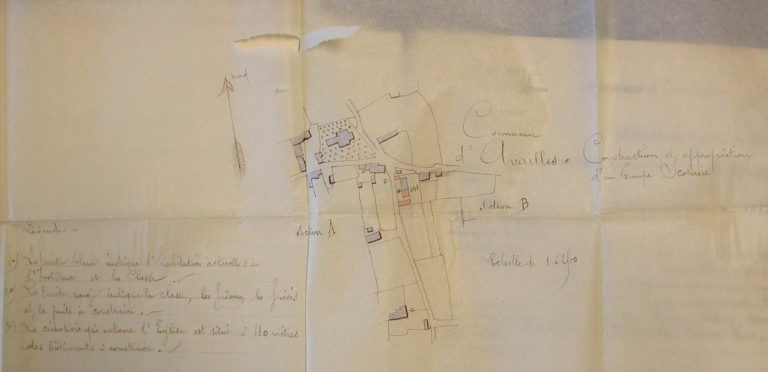 nord
Commune
d'Availles.
Construction et appropriation
d'un Groupe Scolaire
Section A
Section B
Echelle de 1 à
Légende.
La teinte bleue indique l'habitation actuelle de
l'Instituteur et la Classe.
La teinte indique la classe, les préaux, les privés
et le puits à construire.
Le cimetière qui entoure l'Eglise est situé à 40 mètres
des bâtiments à construire.